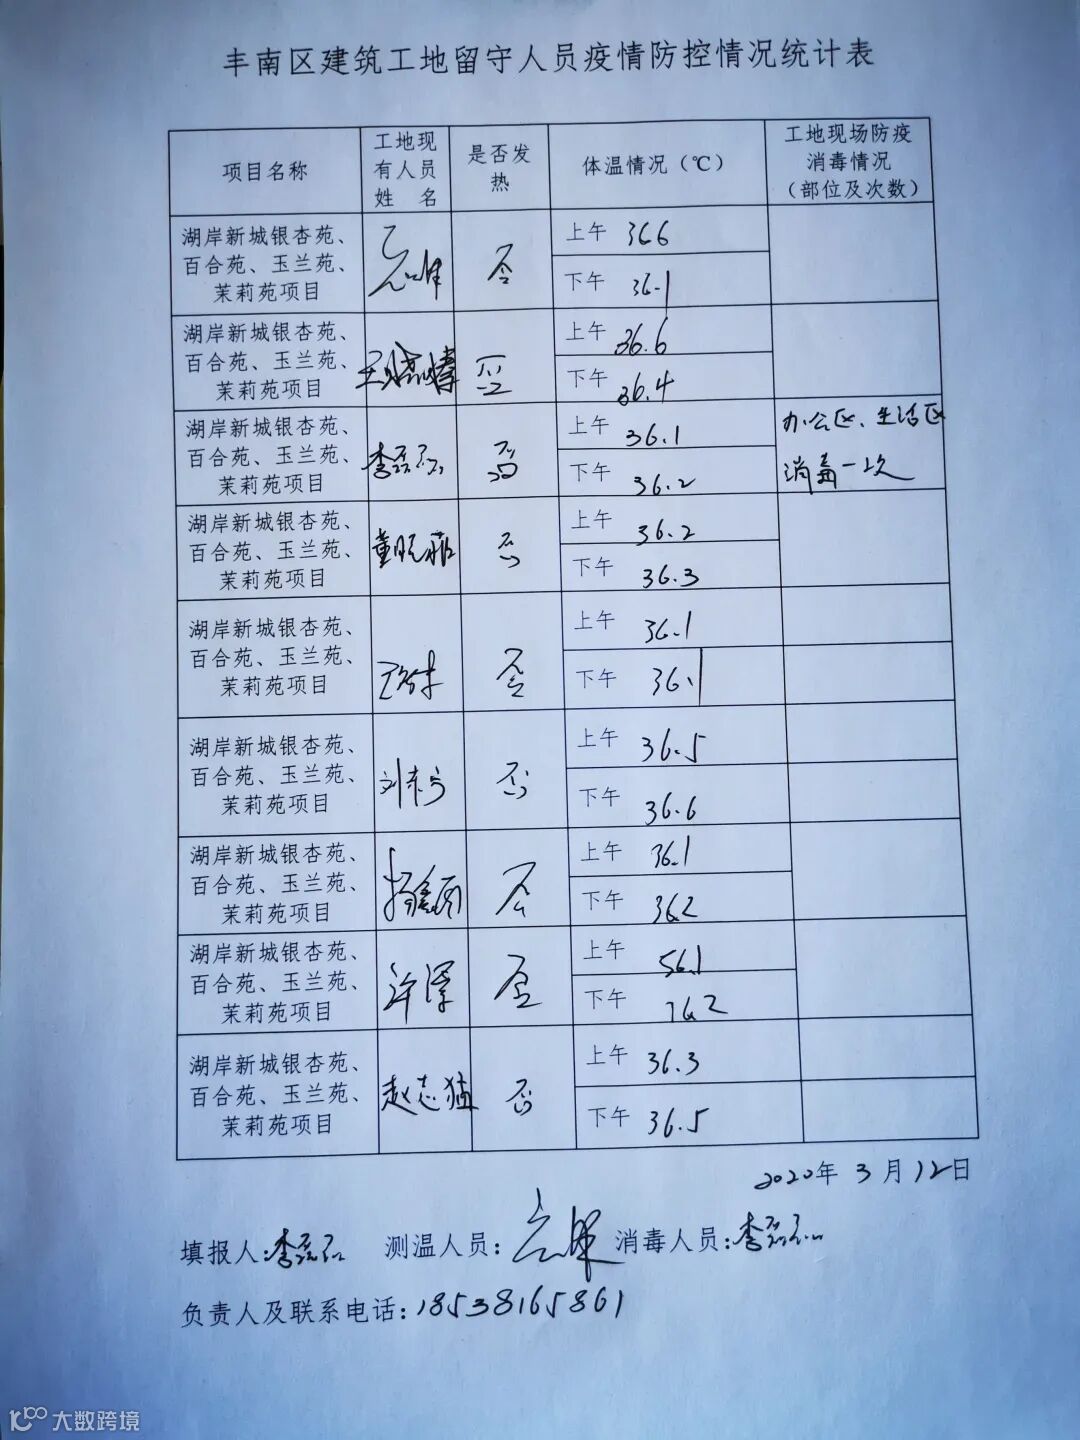 丰南区建筑工地留守人员疫情防控情况统计表
项目名称
工地现
有人员
姓 名
是否发
热
体温情况（℃）
工地现场防疫
消毒情况
（部位及次数）
湖岸新城银杏苑、
百合苑、玉兰苑、
茉莉苑项目
否
上午 366
下午 36.1
湖岸新城银杏苑、
百合苑、玉兰苑、
茉莉苑项目
否
上午 36.6
下午 36.4
湖岸新城银杏苑、
百合苑、玉兰苑、
茉莉苑项目
李磊磊
否
上午 36.1
下午 36.2
办公区、生活区
消毒一次
湖岸新城银杏苑、
百合苑、玉兰苑、
茉莉苑项目
否
上午 36.2
下午 36.3
湖岸新城银杏苑、
百合苑、玉兰苑、
茉莉苑项目
否
上午 36.1
下午 36.1
湖岸新城银杏苑、
百合苑、玉兰苑、
茉莉苑项目
否
上午 36.5
下午 36.6
湖岸新城银杏苑、
百合苑、玉兰苑、
茉莉苑项目
否
上午 36.1
下午 36.2
湖岸新城银杏苑、
百合苑、玉兰苑、
茉莉苑项目
许泽
否
上午 36.1
下午 36.2
湖岸新城银杏苑、
百合苑、玉兰苑、
茉莉苑项目
赵志猛
否
上午 36.3
下午 36.5
2020年 3月12日
填报人：李磊磊 测温人员： 消毒人员：李磊磊
负责人及联系电话：18538165861
大数跨境